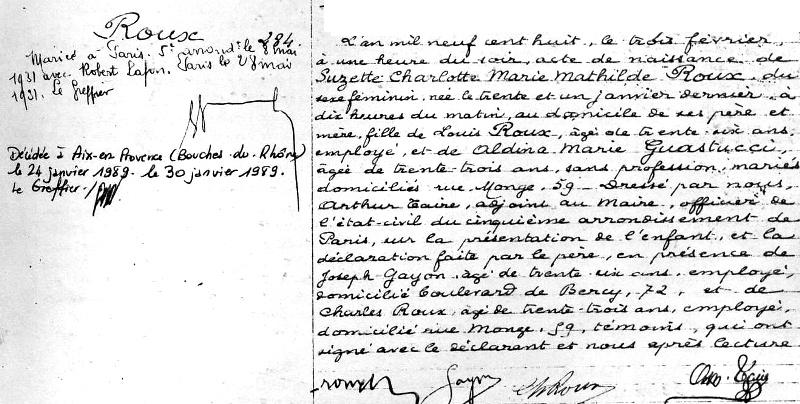 Roux
294
Mariée à Paris. 5e arrondt le 8 mai
1931 avec Robert Lafon. Paris le 28 mai
1931. Le Greffier
Décédée à Aix-en Provence (Bouches-du-Rhône)
le 24 janvier 1989. le 30 janvier 1989.
Le Greffier
L'an mil neuf cent huit, le trois février,
à une heure du soir, acte de naissance de
Suzette Charlotte Marie Mathilde Roux, du
sexe féminin, née le trente et un janvier dernier, à
dix heures du matin, au domicile de ses père et
mère, fille de Louis Roux, âgé de trente-six ans,
employé, et de Aldina Marie Guastucci,
âgée de trente-trois ans, sans profession, mariés
domiciliés rue Monge, 59 – Dressé par nous,
Arthur adjoint au Maire, officier de
l'état-civil du cinquième arrondissement de
Paris, sur la présentation de l'enfant, et la
déclaration faite par le père, en présence de
Joseph Gayon, âgé de trente six ans, employé,
domicilié boulevard de Bercy, 72, et de
Charles Roux, âgé de trente-trois ans, employé,
domicilié rue Monge, 59, témoins, qui ont
signé avec le déclarant et nous après lecture
Gayon ChRoux